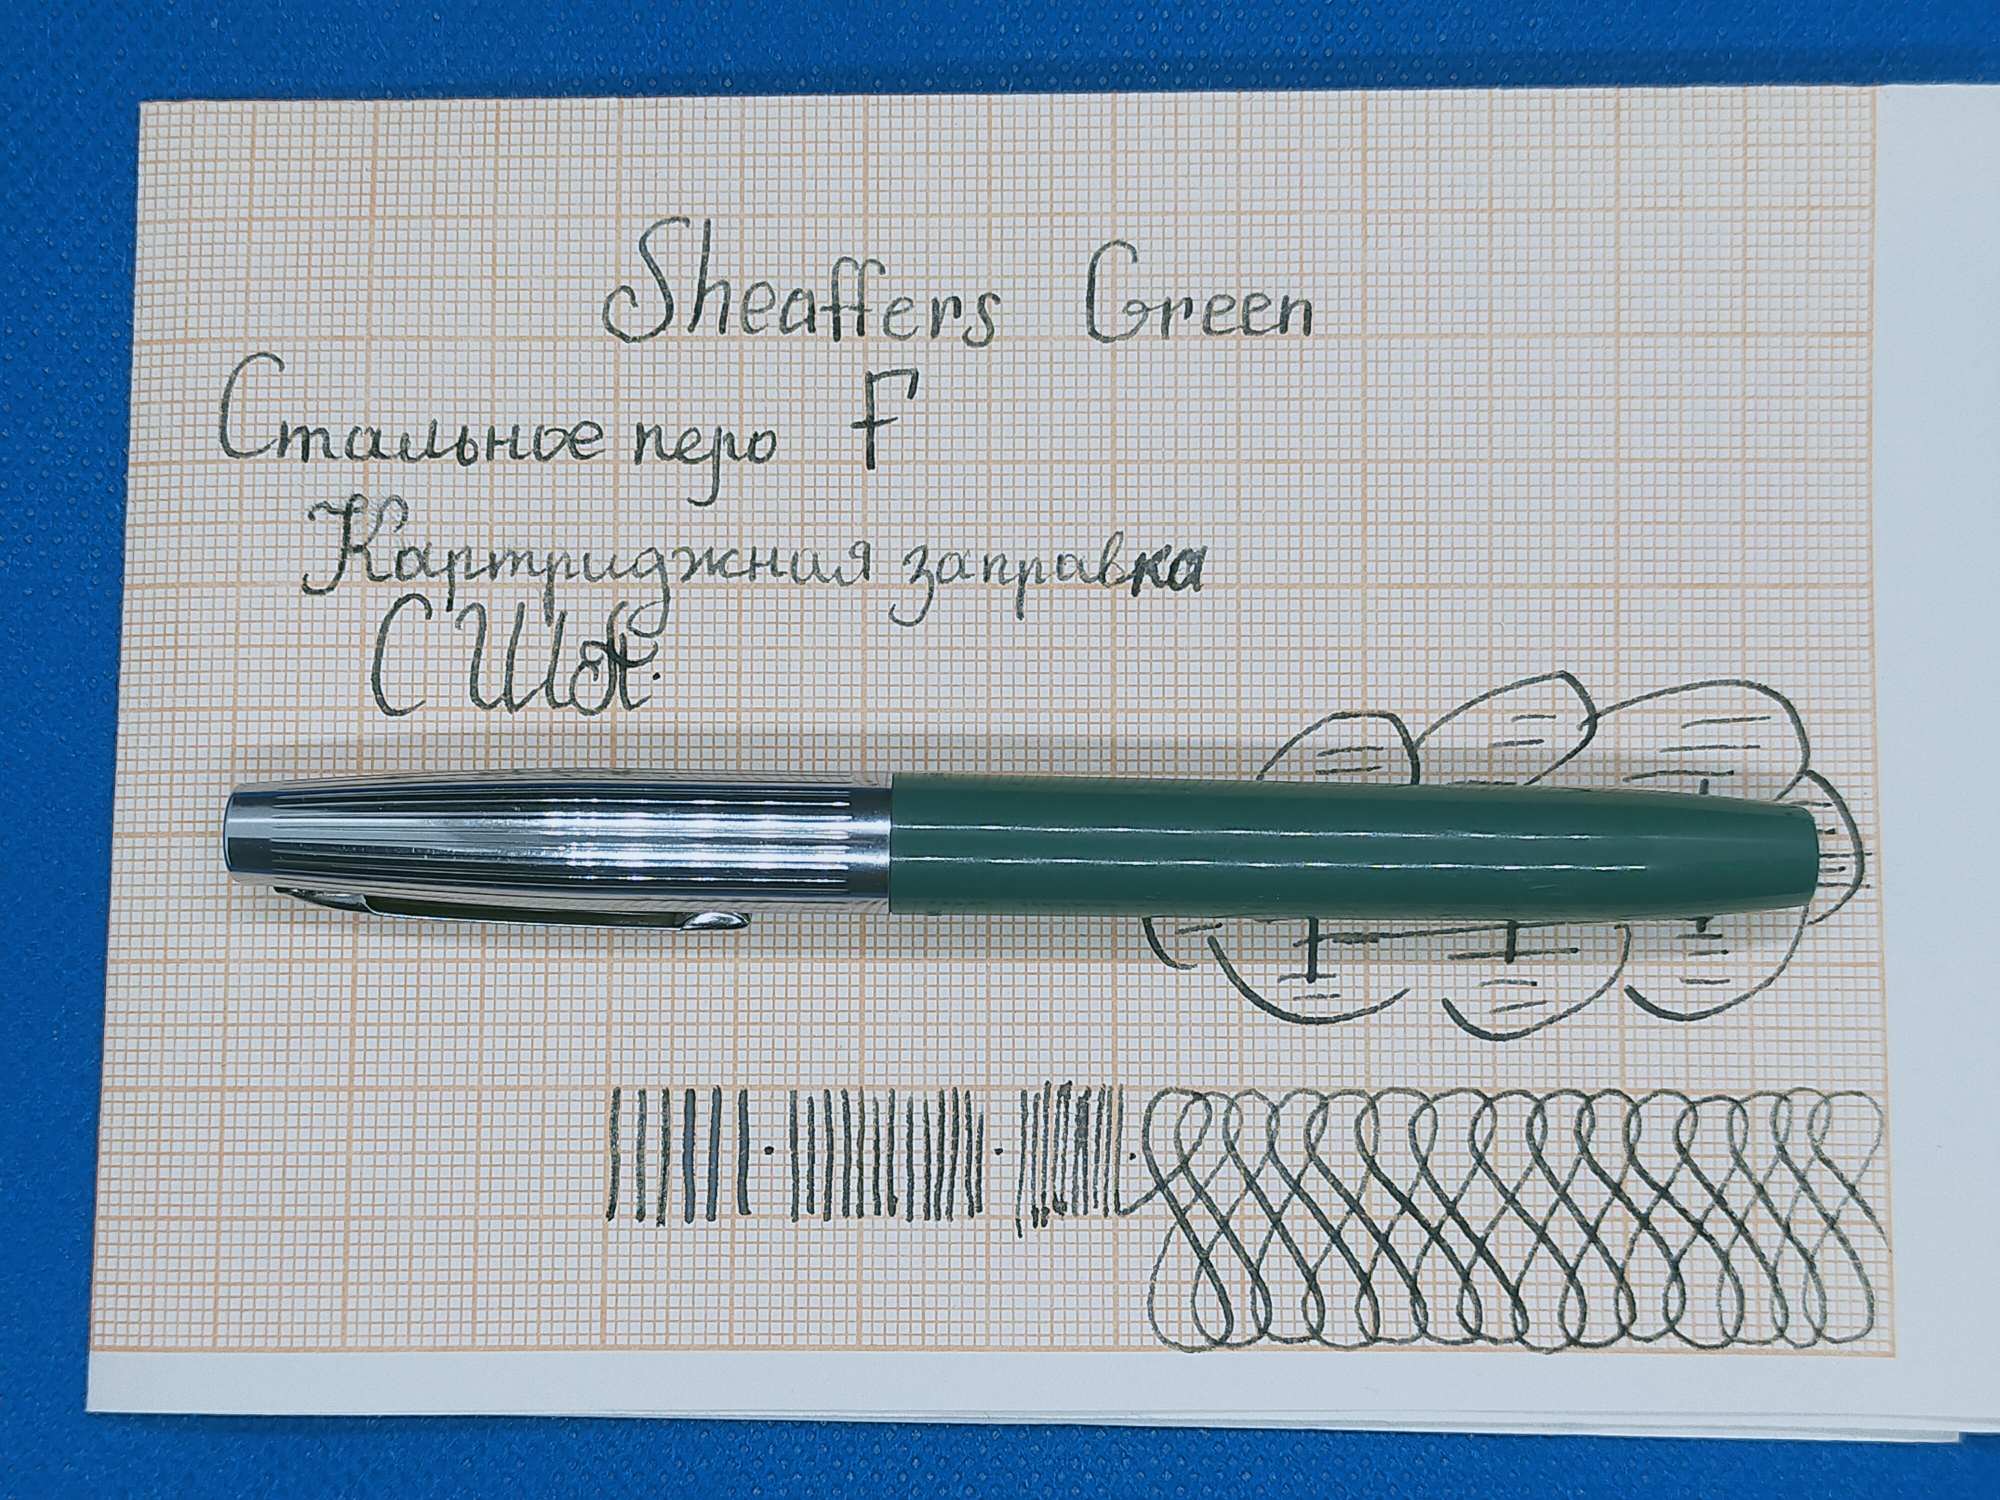 Sheaffers Green
Стальное перо F
Картриджная заправка
США.